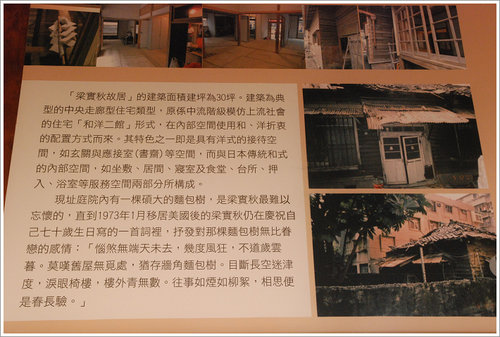 「梁實秋故居」的建築面積建坪為30坪。建築為典
型的中央走廊型住宅類型，原係中流階級模仿上流社會
的住宅「和洋二館」形式，在內部空間使用和、洋折衷
的配置方式而來。其特色之一即是具有洋式的接待空
間，如玄關與應接室(書齋)等空間，而與日本傳統和式
的內部空間，如坐敷、居間、寢室及食堂、台所、押
入、浴室等服務空間兩部分所構成。
現址庭院內有一棵碩大的麵包樹，是梁實秋最難以
忘懷的，直到1973年1月移居美國後的梁實秋仍在慶祝自
己七十歲生日寫的一首詞裡，抒發對那棵麵包樹無比眷
戀的感情：「惱煞無端天未去，幾度風狂，不道歲雲
暮。莫嘆舊屋無覓處，猶存牆角麵包樹。目斷長空迷津
度，淚眼椅樓，樓外青無數。往事如煙如柳絮，相思便
是春長驗。」